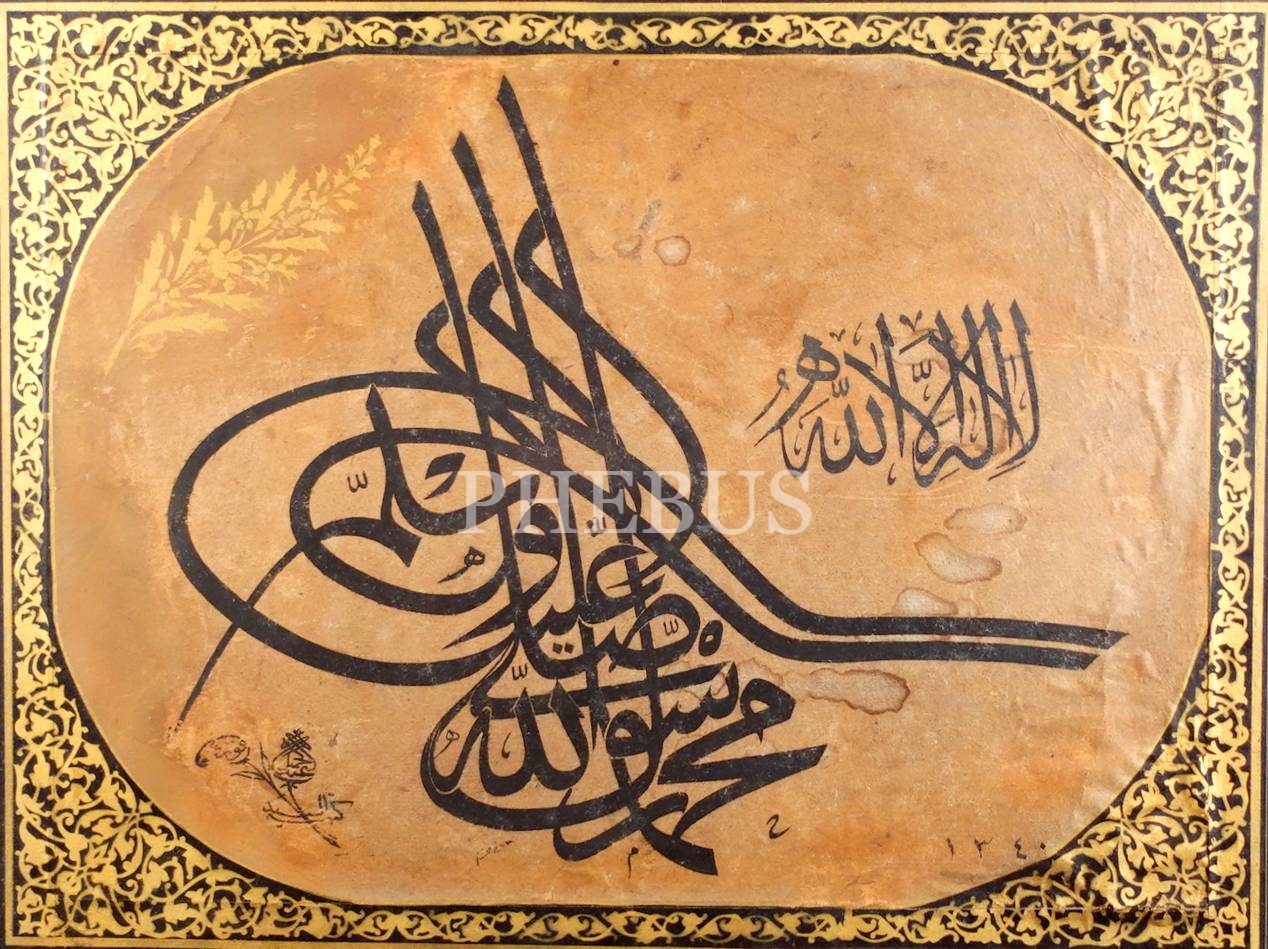 لا اله الا الله
محمد رسول الله صلى الله عليه وسلم
١٣٤٠
PHEBUS